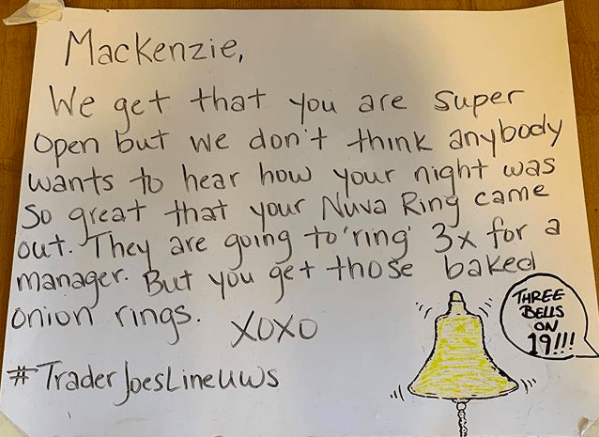 Mackenzie,
We get that you are super
open but we don't think anybody
wants to hear how your night was
so great that your Nuva Ring came
out. They are going to 'ring' 3x for a
manager. But you get those baked
onion rings. XOXO
THREE
BELLS
ON
19!!!
#TraderJoesLineUWS